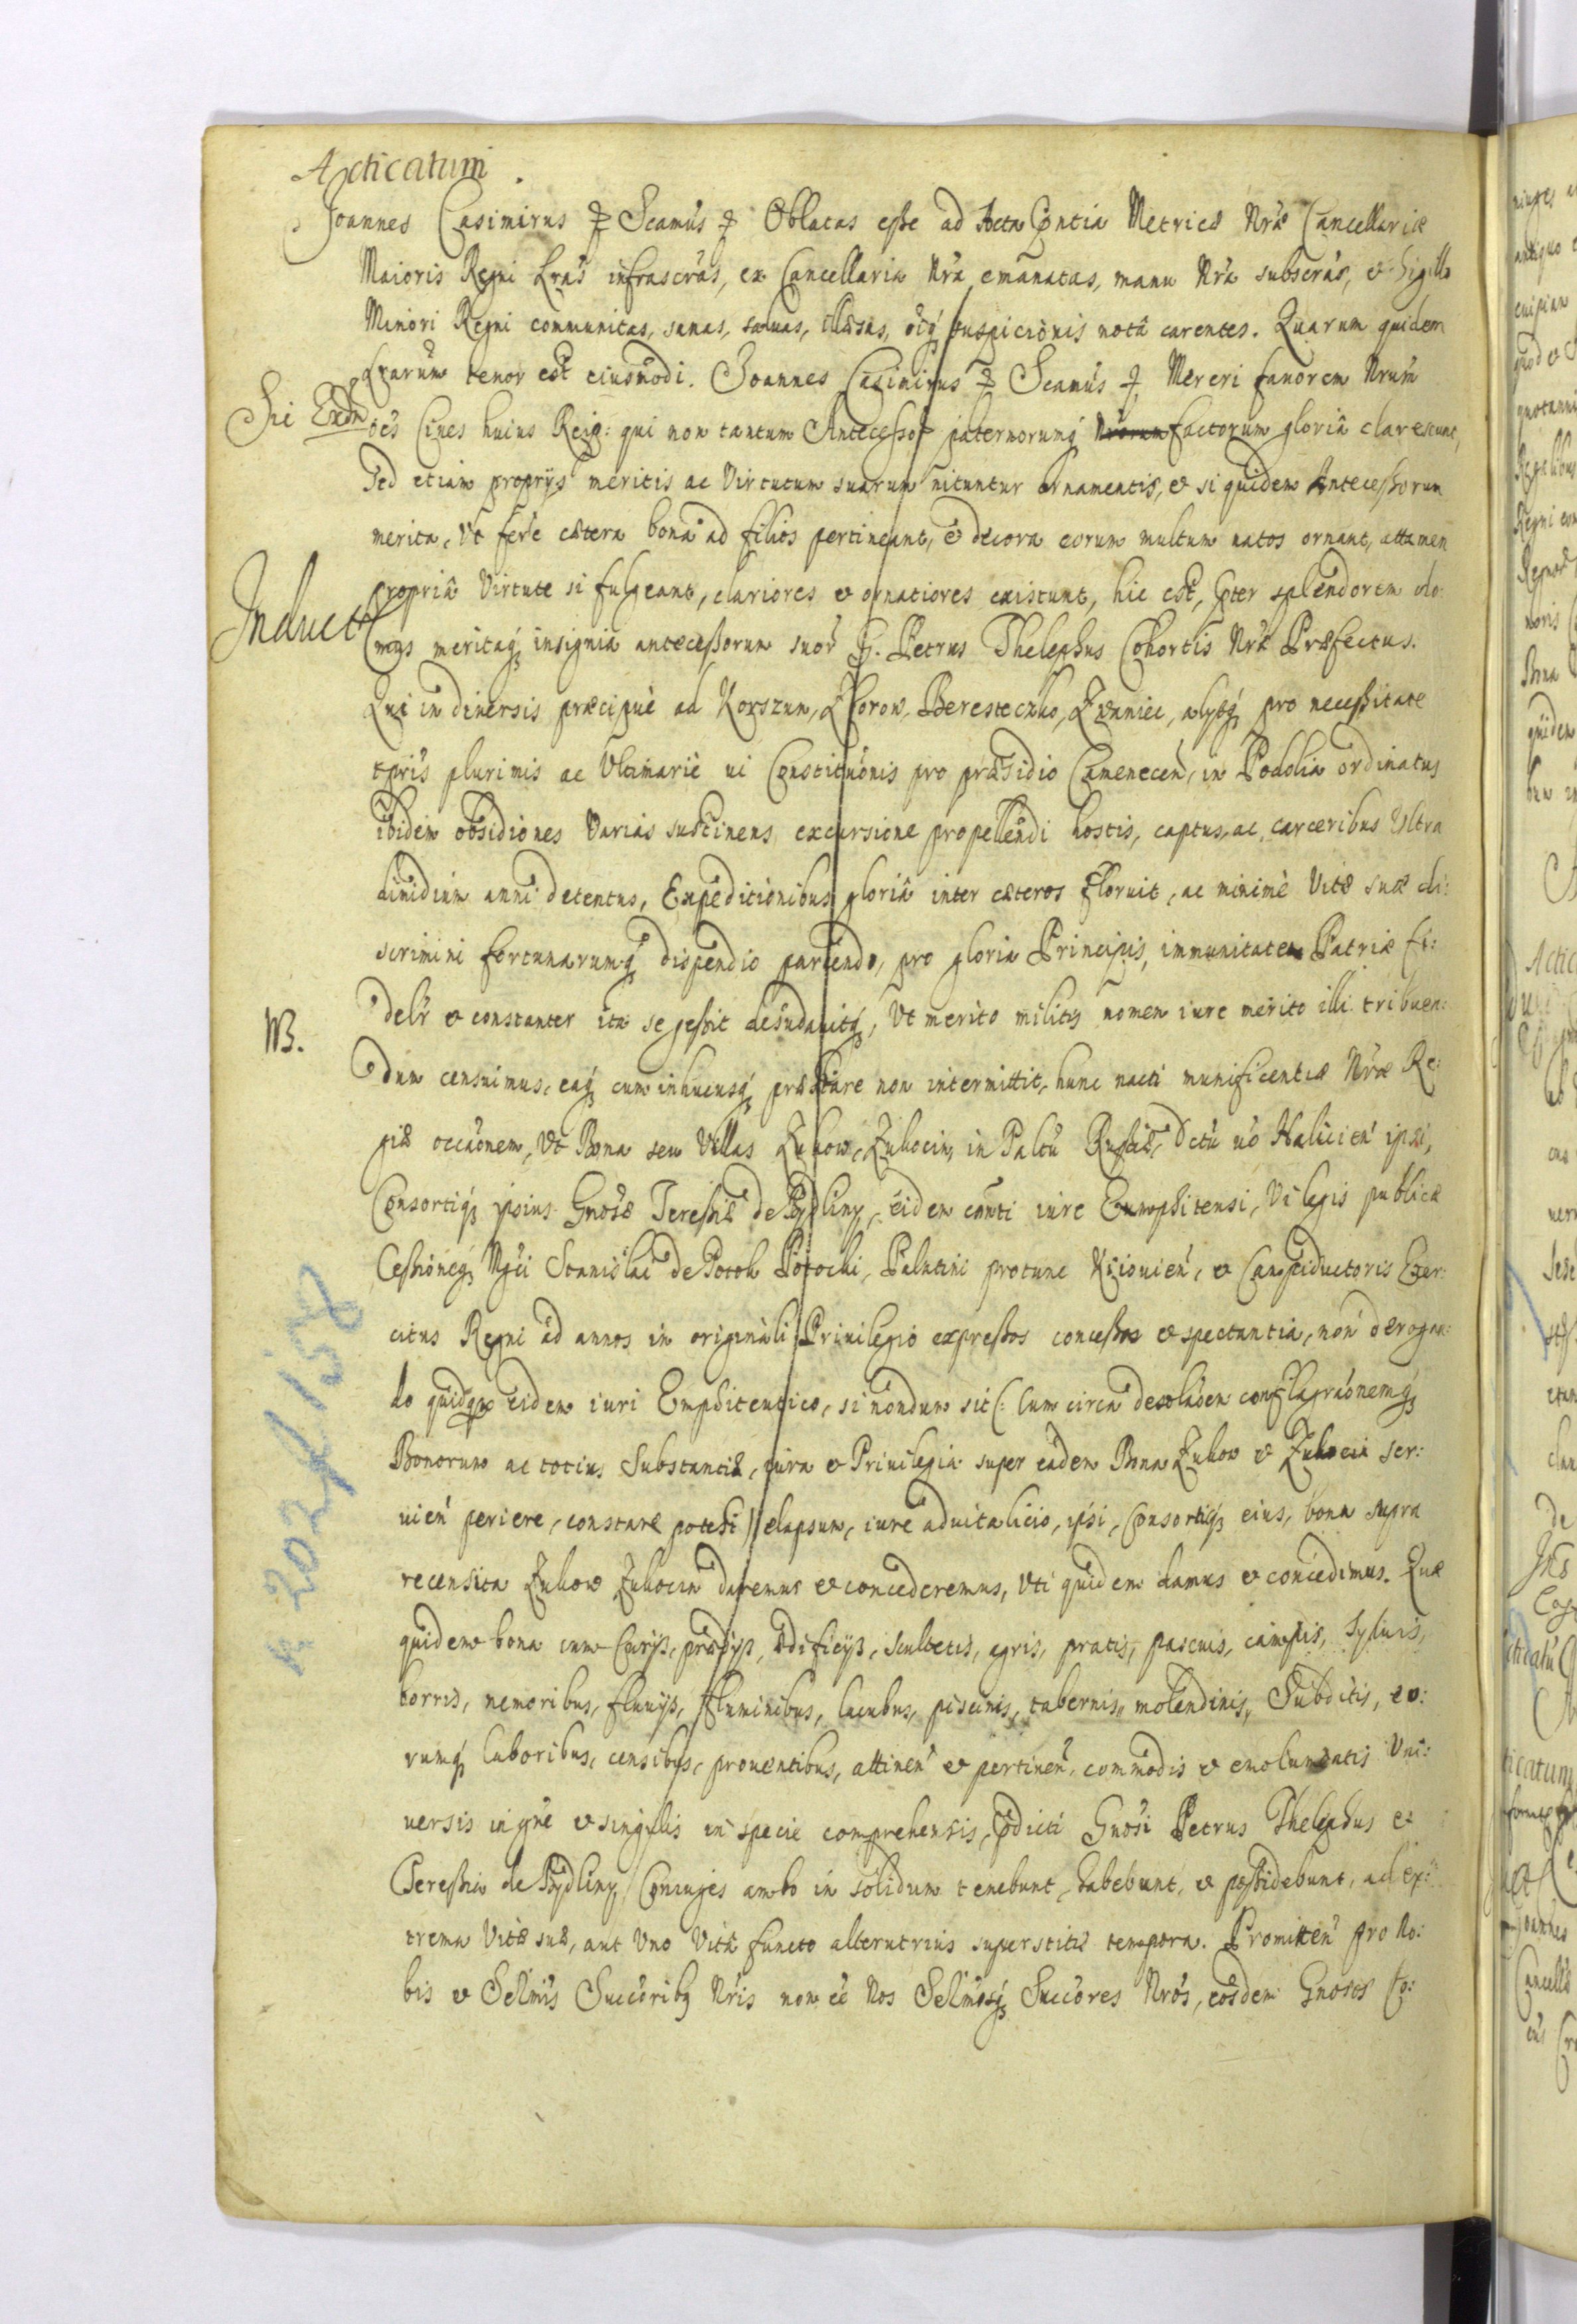 Acticatum.
Joannes Casimirus & Scamus & Oblatas esse ad Acta Pntia Metrices Nrae Cancellariae
Maioris Regni Lras infrascras, ex Cancellaria Nra emanatas, manu Nra subscras, et Sigillo
Minori Regni communitas, sanas, saluas, illaesas, oiq suspicionis notâ carentes. Quarum quidem
Lrarum tenor est eiusmodi. Joannes Casimirus & Scamus & Mereri fauorem Nrum
Sic Exdn
oes Ciues huius Reip: qui non tantum Antecessor paternorumq factorum gloriâ clarescunt,
sed etiam proprijs meritis ac Virtutum suarum nituntur ornamentis, et si quidem Antecessorum
merita, Vt fere caetera bona ad filios pertineant, et decora eorum multum natos ornant, attamen
Induct
propriâ Virtute si fulgeant, clariores et ornatiores existunt, hic est, pter splendorem do:
mus meritaq insignia antecessorum suor G. Petrus Thelephus Cohortis Nrae Praefectus.
Qui in diuersis praecipuè ad Korszun, Zborow, Beresteczko, Zwaniec, alijsq pro necessitate
tpris plurimis ac Vltimariè ui Constituonis pro praesidio Camenecen, in Podolia ordinatus
ibidem obsidiones Varias sustinens excursione propellendi hostis, captus, ac carceribus Vltra
dimidium anni detentus, Expeditionibus gloriâ inter caeteros floruit, ac minimè Vitae suae di:
scrimini fortunarumq dispendio parcendo, pro gloria Principis, immunitate Patriae fi:
NB.
delr et constanter ita se gessit desudauitq, Vt merito militis nomen iure merito illi tribuen:
dum censuimus, eaq cum inhucusq praestare non intermittit, hunc nacti munificentiae Nrae Re:
giae occaonem, Vt Bona seu Villas Zukow, Zukocin, in Paltu Russiae, Dctu uo Halicien ipsi,
Consortiq ipsius Gnosae Teressiae de Pydliny, eidem conti iure Emphitensi, Vi legis publicae
Cessioneq Mgci Stanislai de Potok Potocki, Palatini protunc Kijouien, et Campiductoris Exer:
citus Regni ad annos in originali Priuilegio expressos concessos et spectantia, non deroga:
do quidq eidem iuri Emphiteutico, si nondum sit (: cum circa desolaoem conflagraonemq
Bonorum ac totius Substantiae, iura et Priuilegia super eadem Bona Zukow et Zukocin ser:
uien periere, constare potest :) elapsum, iure aduitalicio, ipsi, Consortiq eius, bona supra
recensita Zukow Zukocin daremus et concederemus, Vti quidem damus et concedimus. Quae
quidem bona cum Curijs, praedijs, aedificijs, scultetis, agris, pratis, pascuis, campis, syluis,
borris, nemoribus, fluuijs, fluminibus, lacubus, piscinis, tabernis, molendinis, Subditis, eo:
rumq laboribus, censibus, prouentibus, attinen et pertinen, commodis et emolumentis Vni:
uersis in gne et singulis in specie comprehensis, pdicti Gnosi Petrus Thelephus et
Teressia de Pydliny Coniuges ambo in solidum tenebunt, habebunt, et possidebunt, ad ex:
trema Vitae suae, aut Vno Vitâ functo alterutrius superstitis tempora. Promitten pro No:
bis et Selmis Succoribq Nris non ee Nos Selmosq Succores Nros, eosdem Gnosos Co:
k 202 f 158